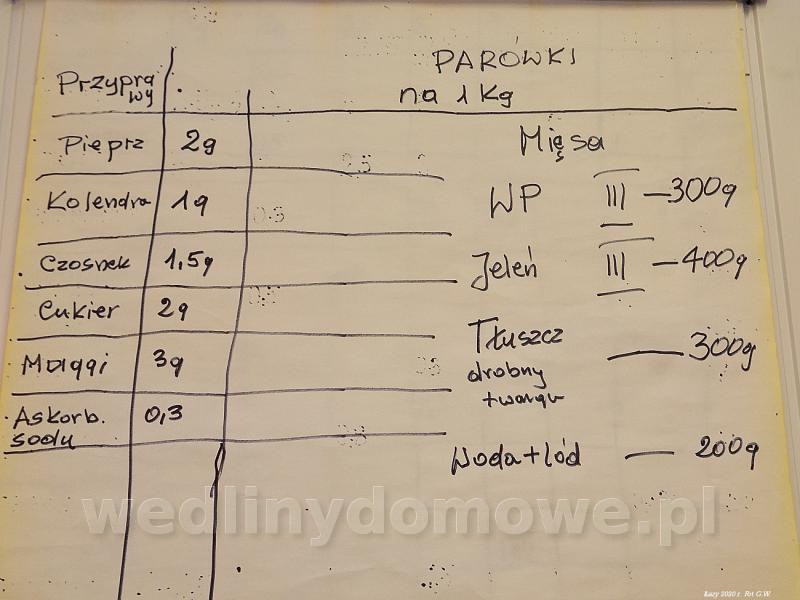 PARÓWKI
na 1 Kg
Przypra
wy
Pieprz 2g
Kolendra 1g
Czosnek 1,5g
Cukier 2g
Maggi 3g
Askorb. 0,3
sodu
Mięsa
WP III — 300g
Jeleń III — 400g
Tłuszcz — 300g
drobny
twardy
Woda + lód — 200g
wedlinydomowe.pl
Łazy 2020 r. Fot G.W.